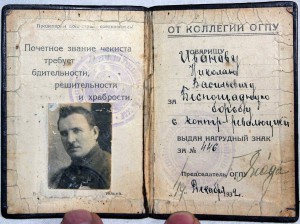 Почетное звание чекиста
требует
бдительности,
решительности
и храбрости.
ОТ КОЛЛЕГИИ ОГПУ
ТОВАРИЩУ
Иванову
Николаю
Васильевичу
за Беспощадную
борьбу
с контр-революцией
ВЫДАН НАГРУДНЫЙ ЗНАК
ЗА № 446
Председатель ОГПУ
19 Декабря 1932 г.